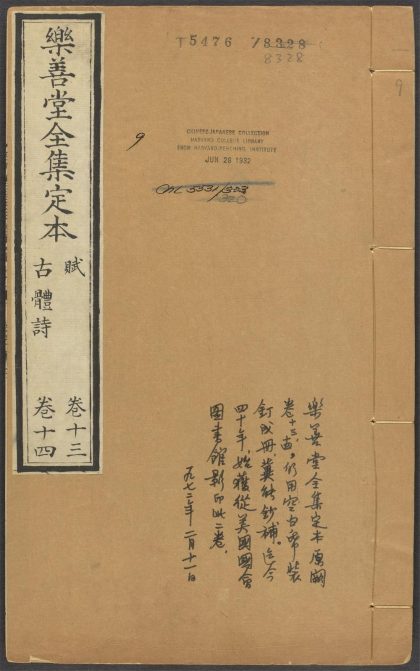 樂善堂全集定本
賦 卷十三
古體詩 卷十四
T5476 78328
8328
9
9
CHINESE-JAPANESE COLLECTION
HARVARD COLLEGE LIBRARY
FROM HARVARD-YENCHING INSTITUTE
JUN 28 1932
樂善堂全集定本原闕
卷十三、四，仍用空白帋裝
釘成冊，冀能鈔補。迄今
四十年，始獲從美國國會
圖書館影印此二卷，
一九七二年二月十一日